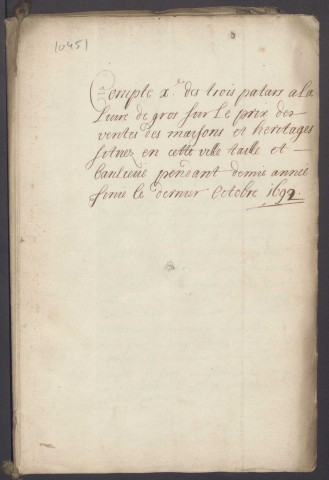 10451
Compte x.e des trois patars a La
Livre de gros sur Le prix des
ventes des maisons et heritages
situez en cette ville taille et
banlieue pendant demie année
finie le dernier Octobre 1692.